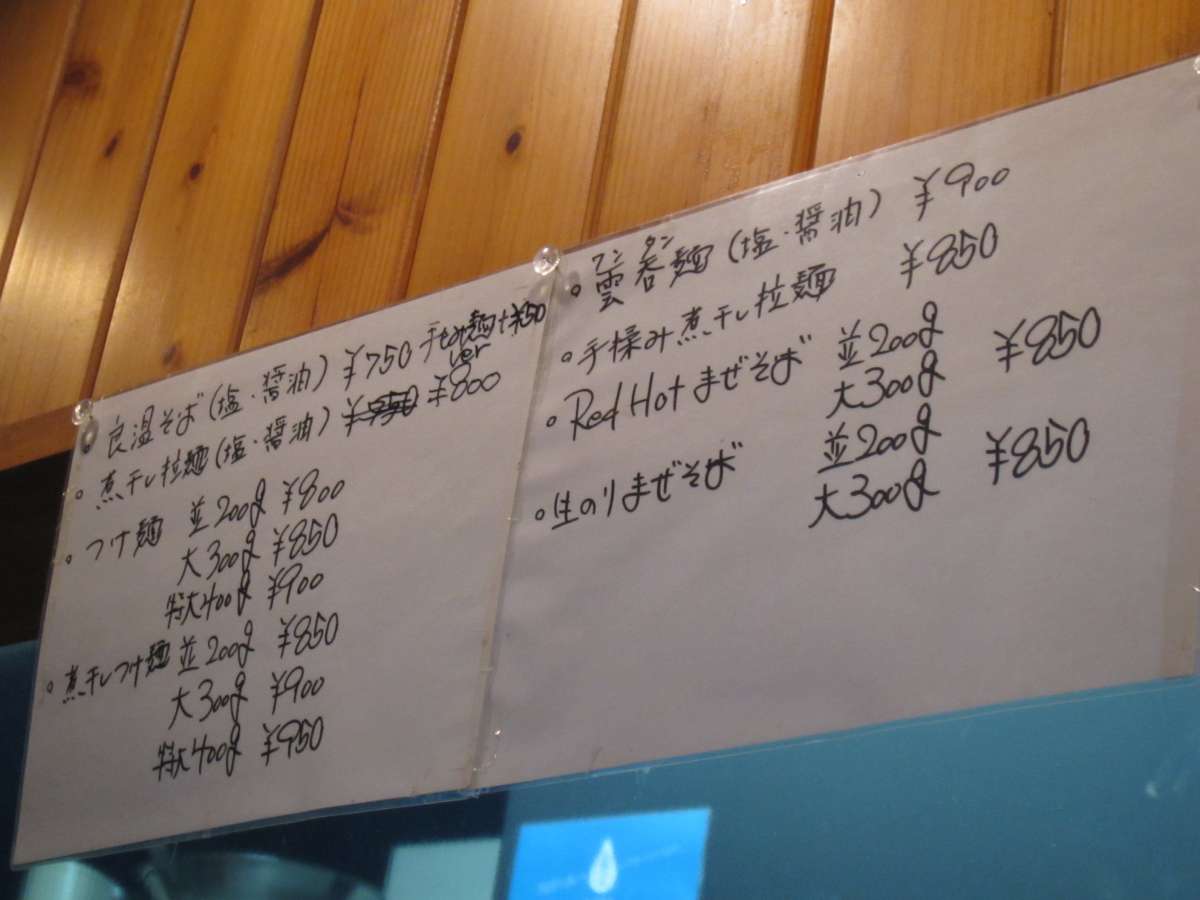 。良温そば(塩・醤油) ¥750 手もみ麺+¥50
ver
。煮干し拉麺(塩・醤油) ¥800
。つけ麺 並200g ¥800
大300g ¥850
特大400g ¥900
。煮干しつけ麺 並200g ¥850
大300g ¥900
特大400g ¥950
ワンタン
。雲呑麺(塩・醤油) ¥900
。手揉み煮干し拉麺 ¥850
。Red Hotまぜそば 並200g
大300g ¥850
。生のりまぜそば 並200g
大300g ¥850